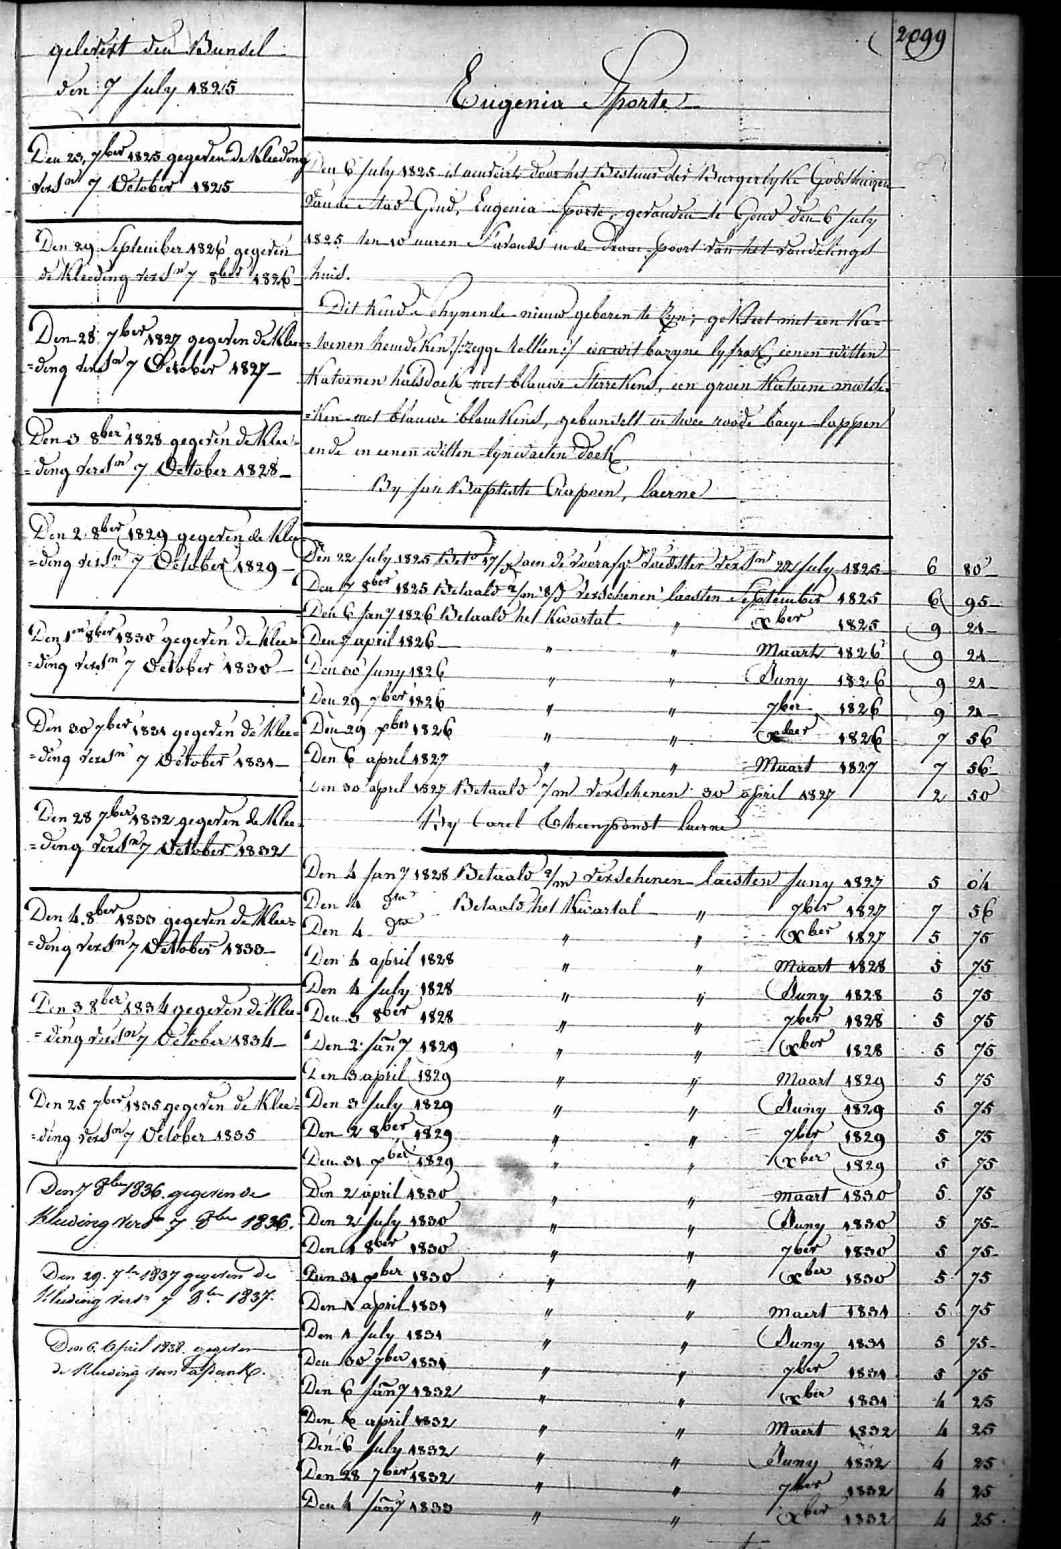 2099
gelevert den Bundel
den 7 July 1825
Den 23, 7ber 1825 gegeven de Kleeding
versn 7 October 1825
Den 29 September 1826 gegeven
de Kleeding versn 7 8ber 1826
Den 28, 7ber 1827 gegeven de Klee-
=ding versn 7 October 1827
Den 3 8ber 1828 gegeven de Klee-
=ding versn 7 October 1828
Den 2 8ber 1829 gegeven de Klee
=ding versn 7 October 1829
Den 1en 8ber 1830 gegeven de Klee=
=ding versn 7 October 1830
Den 30 7ber 1831 gegeven de Klee=
=ding versn 7 October 1831
Den 28 7ber 1832 gegeven de Klee=
=ding versn 7 October 1832
Den 4 8ber 1833 gegeven de Klee=
=ding versn 7 October 1833
Den 3 8ber 1834 gegeven de Klee-
=ding versn 7 October 1834
Den 25 7ber 1835 gegeven de Klee=
=ding versn 7 October 1835
Den 7 8ber 1836 gegeven de
Kleeding versn 7 8ber 1836.
Den 29. 7ber 1837 gegeven de
Kleeding versn 7 8ber 1837.
Den 6. April 1838. gegeven
de Kleeding van afdank.
Eugenia Sporte
Den 6 July 1825 is aenveirt door het Bestuur der Burgerlyke Godshuizen
van de Stad Gend, Eugenia Sporte, gevonden te Gend den 6 July
1825 ten 10 uuren S'avonds in de draaipoort van het vondelings
huis.
Dit Kind schynende nieuw geboren te zyn; gekleet met een Ka=
=toenen hemdeken /:zegge tolleen:/ een wit bazyne lyfrok, eenen witten
Katoenen halsdoek met blauwe Sterrekens, een groen Katoene mutsk=
=ken met blauwe bloemkens, gebundelt in twee roode baeye lappen
ende in eenen witten lynwaeten doek
By Jan Baptiste Crapoen, Laerne
Den 22 July 1825 Beto 17/ aen de voorafge voedster versn 22 July 1825 6 80
Den 7 8ber 1825 Betaald 2/m 8/d verschenen laesten September 1825 6 95
Den 6 Jany 1826 Betaald het Kwartal " Xber 1825 9 21
Den 7 april 1826 " " Maart 1826 9 21
Den 30 Juny 1826 " " Juny 1826 9 21
Den 29 7ber 1826 " " 7ber 1826 9 21
Den 29 Xber 1826 " " Xber 1826 7 56
Den 6 april 1827 " " Maart 1827 7 56
Den 30 april 1827 Betaald 1/m verschenen 30 april 1827 2 50
By Carel Laerne
Den 4 Jany 1828 Betaald 2/m verschenen laesten Juny 1827 5 04
Den 4 dto Betaald het Kwartal " 7ber 1827 7 56
Den 4 dto " " Xber 1827 5 75
Den 4 april 1828 " " Maart 1828 5 75
Den 4 July 1828 " " Juny 1828 5 75
Den 3 8ber 1828 " " 7ber 1828 5 75
Den 2 Jany 1829 " " Xber 1828 5 75
Den 3 april 1829 " " Maart 1829 5 75
Den 3 July 1829 " " Juny 1829 5 75
Den 2 8ber 1829 " " 7ber 1829 5 75
Den 31 Xber 1829 " " Xber 1829 5 75
Den 2 april 1830 " " Maart 1830 5 75
Den 2 July 1830 " " Juny 1830 5 75
Den 1 8ber 1830 " " 7ber 1830 5 75
Den 31 Xber 1830 " " Xber 1830 5 75
Den 1 april 1831 " " Maert 1831 5 75
Den 1 July 1831 " " Juny 1831 5 75
Den 30 7ber 1831 " " 7ber 1831 5 75
Den 6 Jany 1832 " " Xber 1831 4 25
Den 6 april 1832 " " Maert 1832 4 25
Den 6 July 1832 " " Juny 1832 4 25
Den 28 7ber 1832 " " 7ber 1832 4 25
Den 4 Jany 1833 " " Xber 1832 4 25